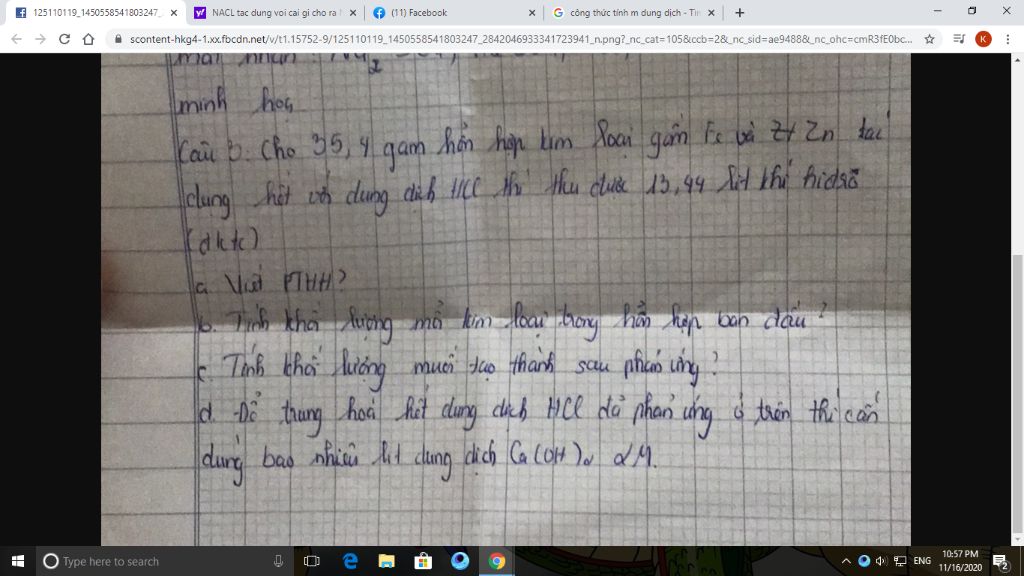 125110119_1450558541803247_
NACL tac dung voi cai gi cho ra N
(11) Facebook
công thức tính m dung dịch - Tìm
scontent-hkg4-1.xx.fbcdn.net/v/t1.15752-9/125110119_1450558541803247_2842046933341723941_n.png?_nc_cat=105&ccb=2&_nc_sid=ae9488&_nc_ohc=cmR3fE0bc...
K
minh hoạ
Câu 3: Cho 35,4 gam hỗn hợp kim loại gồm Fe và Zn tác
dụng hết với dung dịch HCl thì thu được 13,44 lít khí hidrô
(đktc)
a. Viết PTHH?
b. Tính khối lượng mỗi kim loại trong hỗn hợp ban đầu?
c. Tính khối lượng muối tạo thành sau phản ứng?
d. Để trung hoà hết dung dịch HCl đã phản ứng ở trên thì cần
dùng bao nhiêu lít dung dịch Ca(OH)2 2M.
Type here to search
ENG
10:57 PM
11/16/2020
2